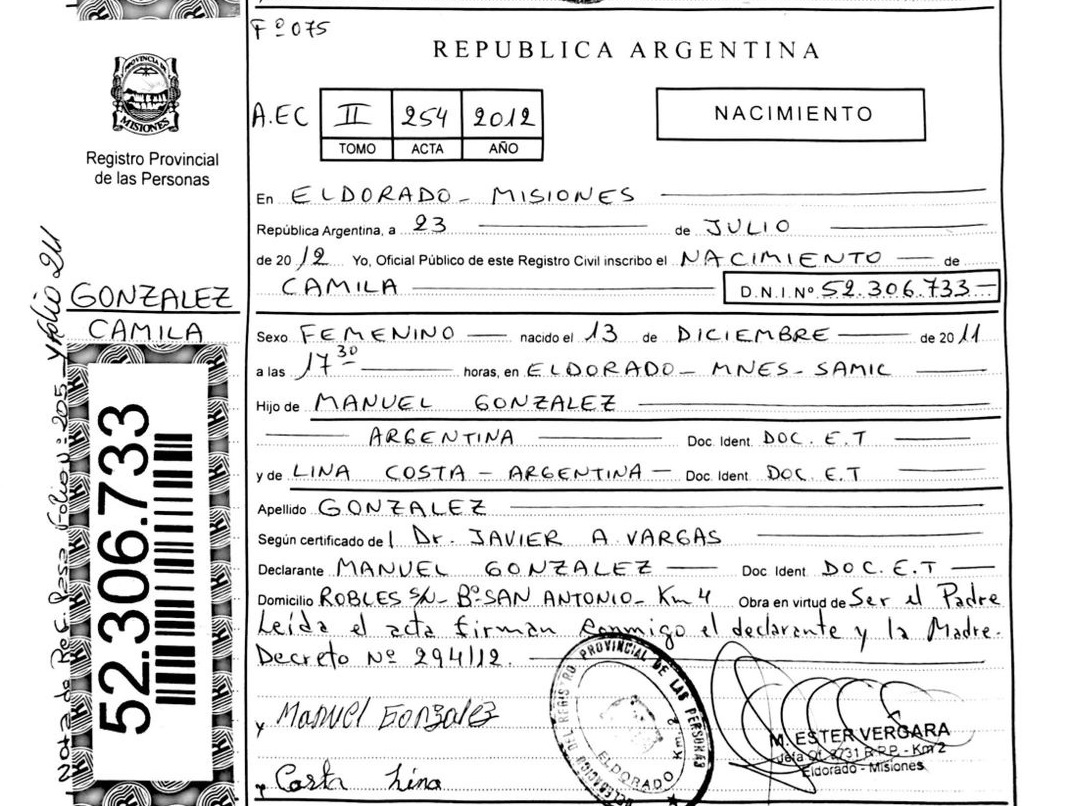 Fº 075
REPUBLICA ARGENTINA
PROVINCIA DE
MISIONES
Registro Provincial
de las Personas
A.EC II 254 2012
TOMO ACTA AÑO
NACIMIENTO
En ELDORADO - MISIONES
República Argentina, a 23 de JULIO
de 2012 Yo, Oficial Público de este Registro Civil inscribo el NACIMIENTO de
CAMILA D.N.I. Nº 52.306.733
GONZALEZ
CAMILA
Sexo FEMENINO nacido el 13 de DICIEMBRE de 2011
a las 17 30 horas, en ELDORADO - MNES - SAMIC
Hijo de MANUEL GONZALEZ
ARGENTINA Doc. Ident. DOC. E.T
y de LINA COSTA - ARGENTINA - Doc. Ident DOC. E.T
Apellido GONZALEZ
Según certificado del Dr. JAVIER A VARGAS
Declarante MANUEL GONZALEZ Doc. Ident DOC. E.T
Domicilio ROBLES S/N - Bº SAN ANTONIO - Km 4 Obra en virtud de Ser el Padre
Leída el acta firman conmigo el declarante y la Madre.
Decreto Nº 294/12.
y Manuel Gonzalez
Costa Lina
DELEGACION DEL REGISTRO PROVINCIAL DE LAS PERSONAS
ELDORADO Km. 2
M. ESTER VERGARA
Jefa Of. 3731 R.P.P. - Km 2
Eldorado - Misiones
52.306.733
Nota de Ref. Pasa Folio nº: 205 - y folio 211